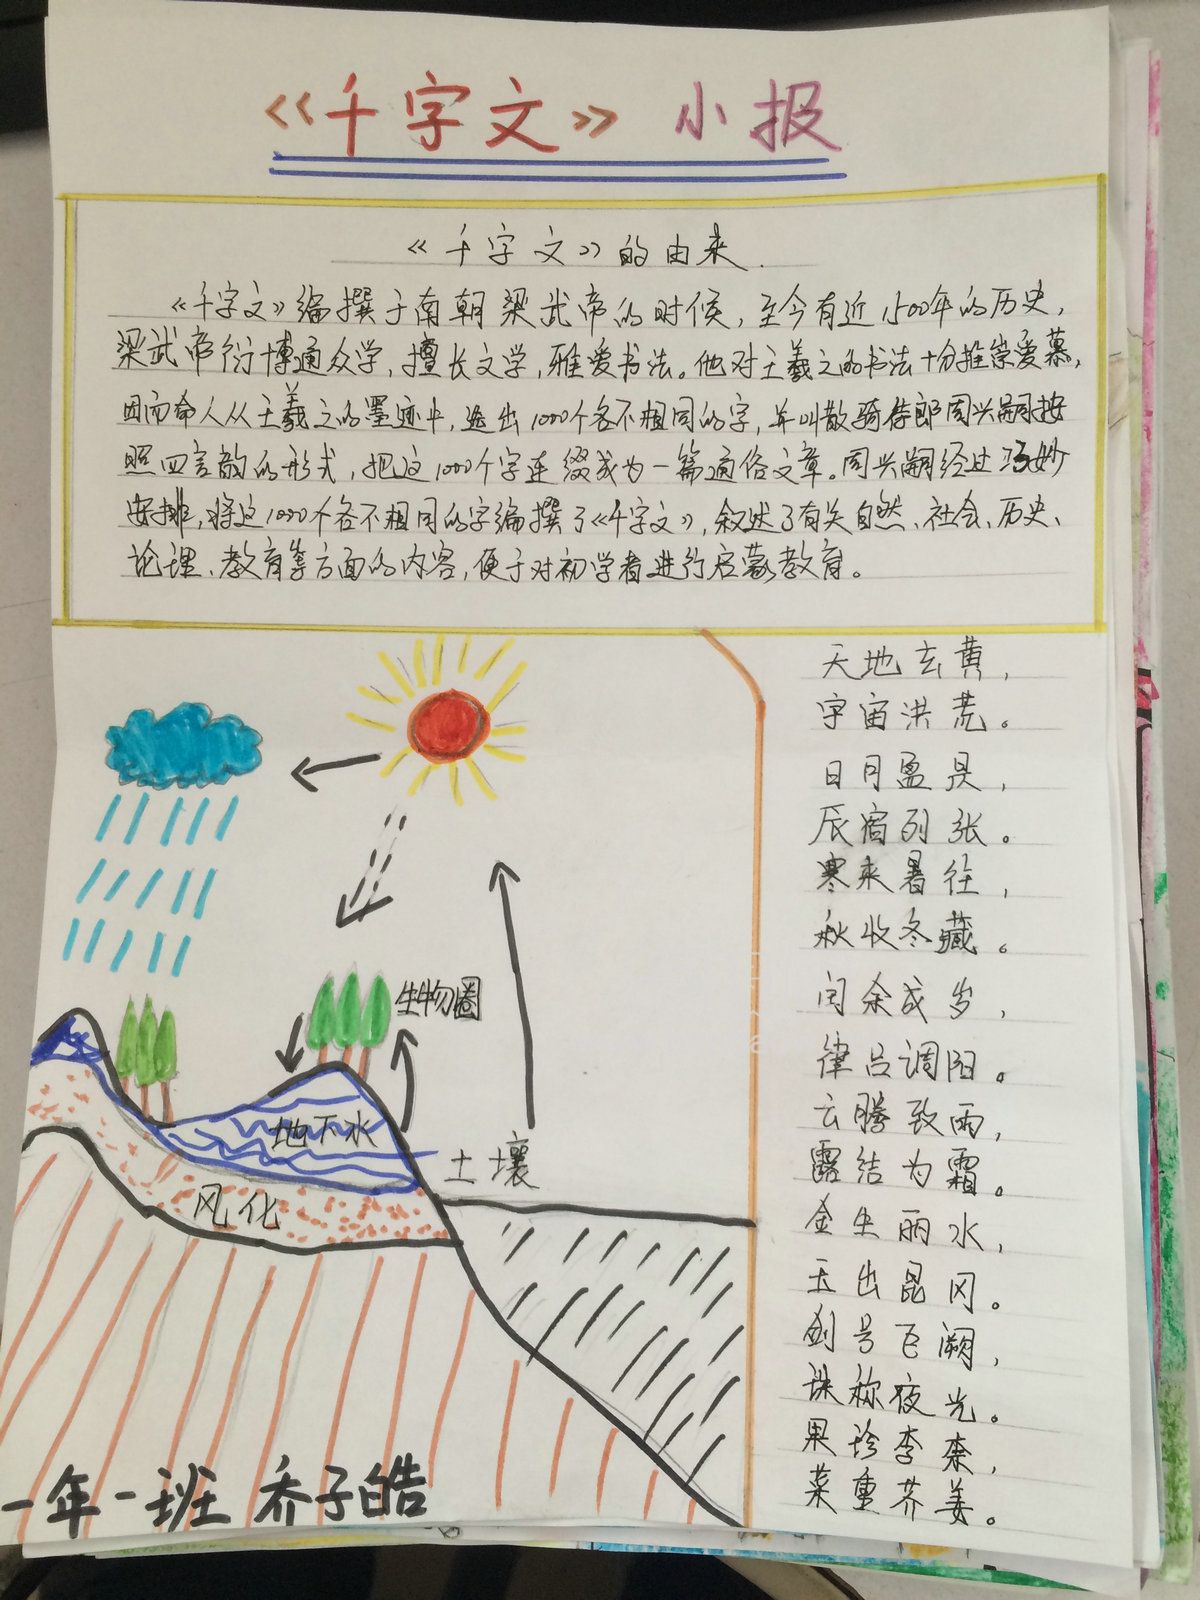 《千字文》小报
《千字文》的由来
《千字文》编撰于南朝梁武帝的时候，至今有近1500年的历史，
梁武帝衍博通众学，擅长文学，雅爱书法。他对王羲之的书法十分推崇爱慕，
因而命人从王羲之的墨迹中，选出1000个各不相同的字，并叫散骑侍郎周兴嗣按
照四言韵的形式，把这1000个字连缀成为一篇通俗文章。周兴嗣经过巧妙
安排，将这1000个各不相同的字编撰了《千字文》，叙述了有关自然、社会、历史、
论理、教育等方面的内容，便于对初学者进行启蒙教育。
天地玄黄，
宇宙洪荒。
日月盈昃，
辰宿列张。
寒来暑往，
秋收冬藏。
闰余成岁，
律吕调阳。
云腾致雨，
露结为霜。
金生丽水，
玉出昆冈。
剑号巨阙，
珠称夜光。
果珍李柰，
菜重芥姜。
生物圈
地下水
土壤
风化
一年一班 乔子皓